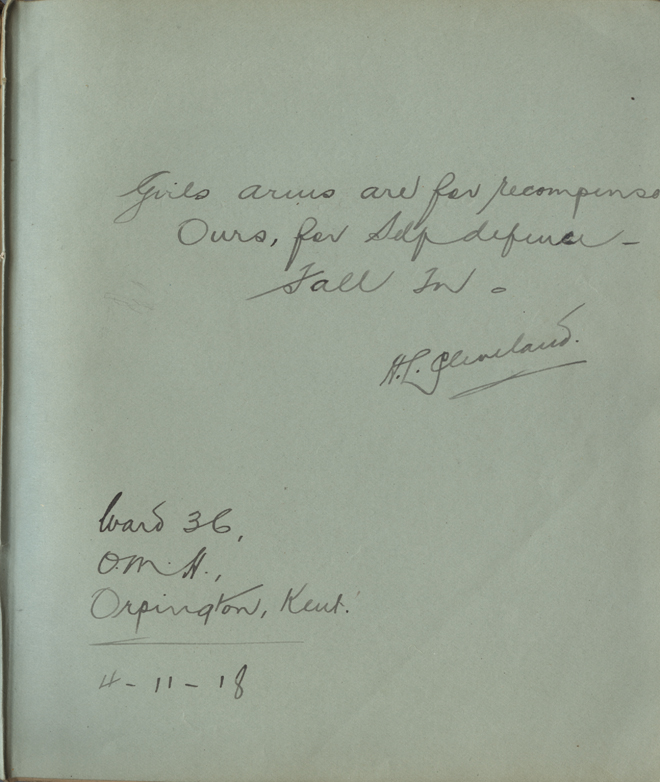 Girls arms are for recompense
Ours, for Self defence -
Fall In.
H.L. Cleveland.
Ward 36,
O.M.H.,
Orpington, Kent.
4-11-18